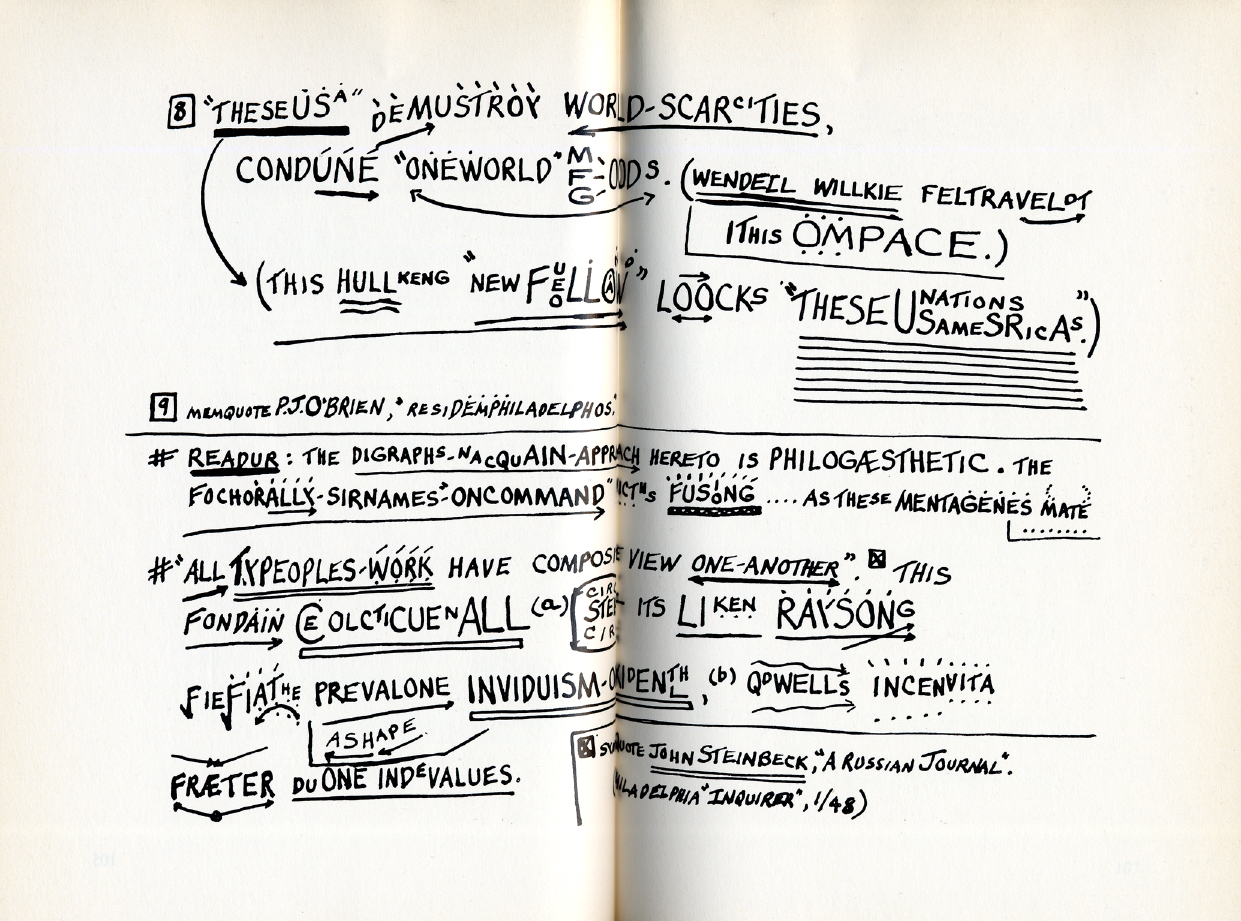 8 "THESEUSA" DEMUSTROY WORLD-SCARCITIES,
CONDUNE "ONEWORLD" MFG-ODDS. (WENDELL WILLKIE FELTRAVELOT
ITHIS OMPACE.)
(THIS HULLKENG "NEW FUEOLLOAW" LOOCKS "THESE UNATIONS USAMESRICAS.")
9 MEMQUOTE P.J.O'BRIEN, "RESIDEMPHILADELPHOS."
# READUR: THE DIGRAPHS-NACQUAIN-APPRACH HERETO IS PHILOGÆSTHETIC. THE
FOCHORALLY-SIRNAMES-ONCOMMAND" FUSING .... AS THESE MENTAGENES MATE
# "ALL TYPEOPLES-WORK HAVE COMPOSIE VIEW ONE-ANOTHER". X THIS
FONDAIN COLCTICUENALL (a) STEP ITS LIKEN RAYSONG
FIEFIATHE PREVALONE INVIDUISM-OKIDENTH, (b) QDWELLS INCENVITA
ASHAPE
FRÆTER DUONE INDEVALUES.
X JOHN STEINBECK, "A RUSSIAN JOURNAL".
"INQUIRER", 1/48)